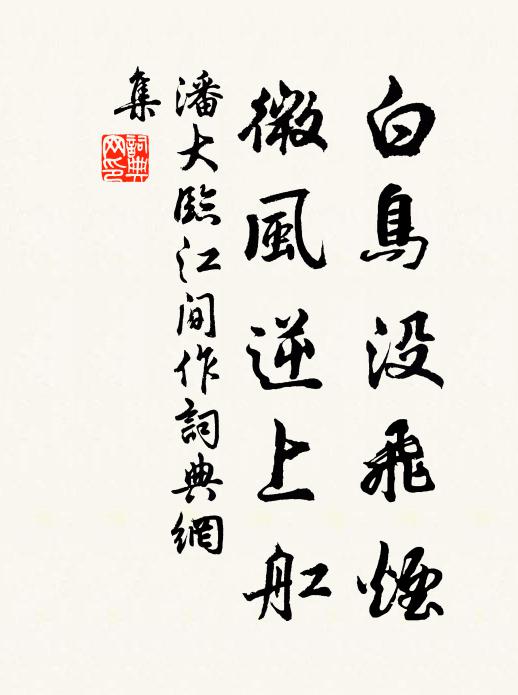 白鳥没飛煙
微風逆上舡
潘大臨江间作詞典網
集
詞典
网印